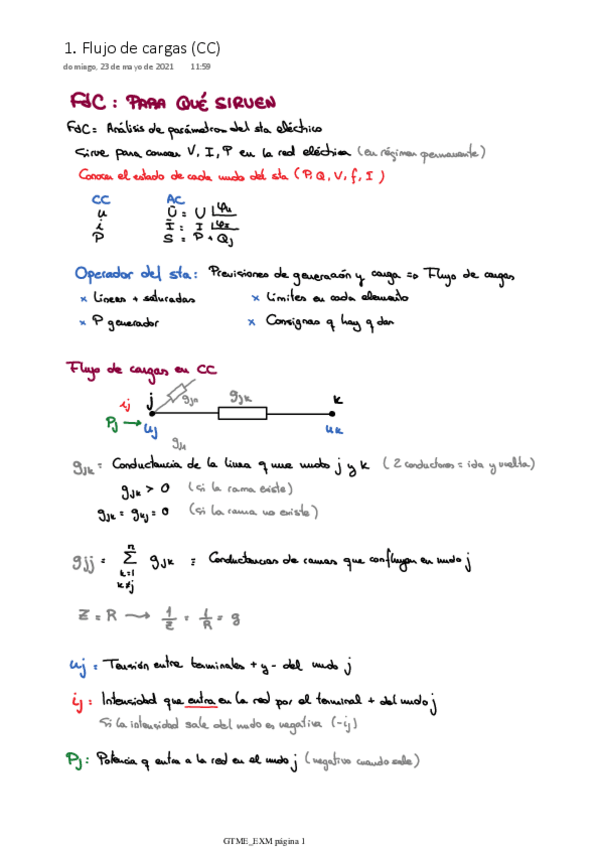 1. Flujo de cargas (CC)
domingo, 23 de mayo de 2021 11:59
FdC: PARA QUÉ SIRVEN
FdC = Análisis de parámetros del sta eléctrico
Sirve para conocer V, I, P en la red eléctrica (en régimen permanente)
Conocer el estado de cada nudo del sta (P, Q, V, f, I)
CC AC
u Ū = U |φu
i Ī = I |φI
P S = P + Qj
Operador del sta: Previsiones de generación y carga => Flujo de cargas
× Líneas + saturadas × Límites en cada elemento
× P generador × Consignas q hay q dar
Flujo de cargas en CC
ij j gjn gjk k
Pj → uj uk
gjk = Conductancia de la línea q une nudo j y k (2 conductores = ida y vuelta)
gjk > 0 (si la rama existe)
gjk = gkj = 0 (si la rama no existe)
gjj = n Σ k=1 k≠j gjk ≡ Conductancias de ramas que confluyen en nudo j
Z = R → 1/Z = 1/R = g
uj = Tensión entre terminales + y - del nudo j
ij: Intensidad que entra en la red por el terminal + del nudo j
Si la intensidad sale del nudo es negativa (-ij)
Pj: Potencia q entra a la red en el nudo j (negativo cuando sale)
GTME_EXM página 1